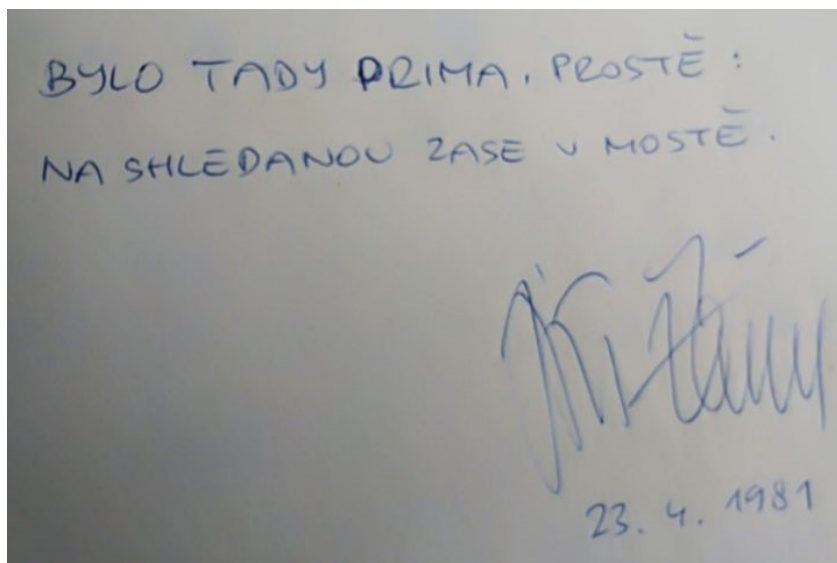 BYLO TADY PRIMA. PROSTĚ:
NA SHLEDANOU ZASE V MOSTĚ.
23. 4. 1981